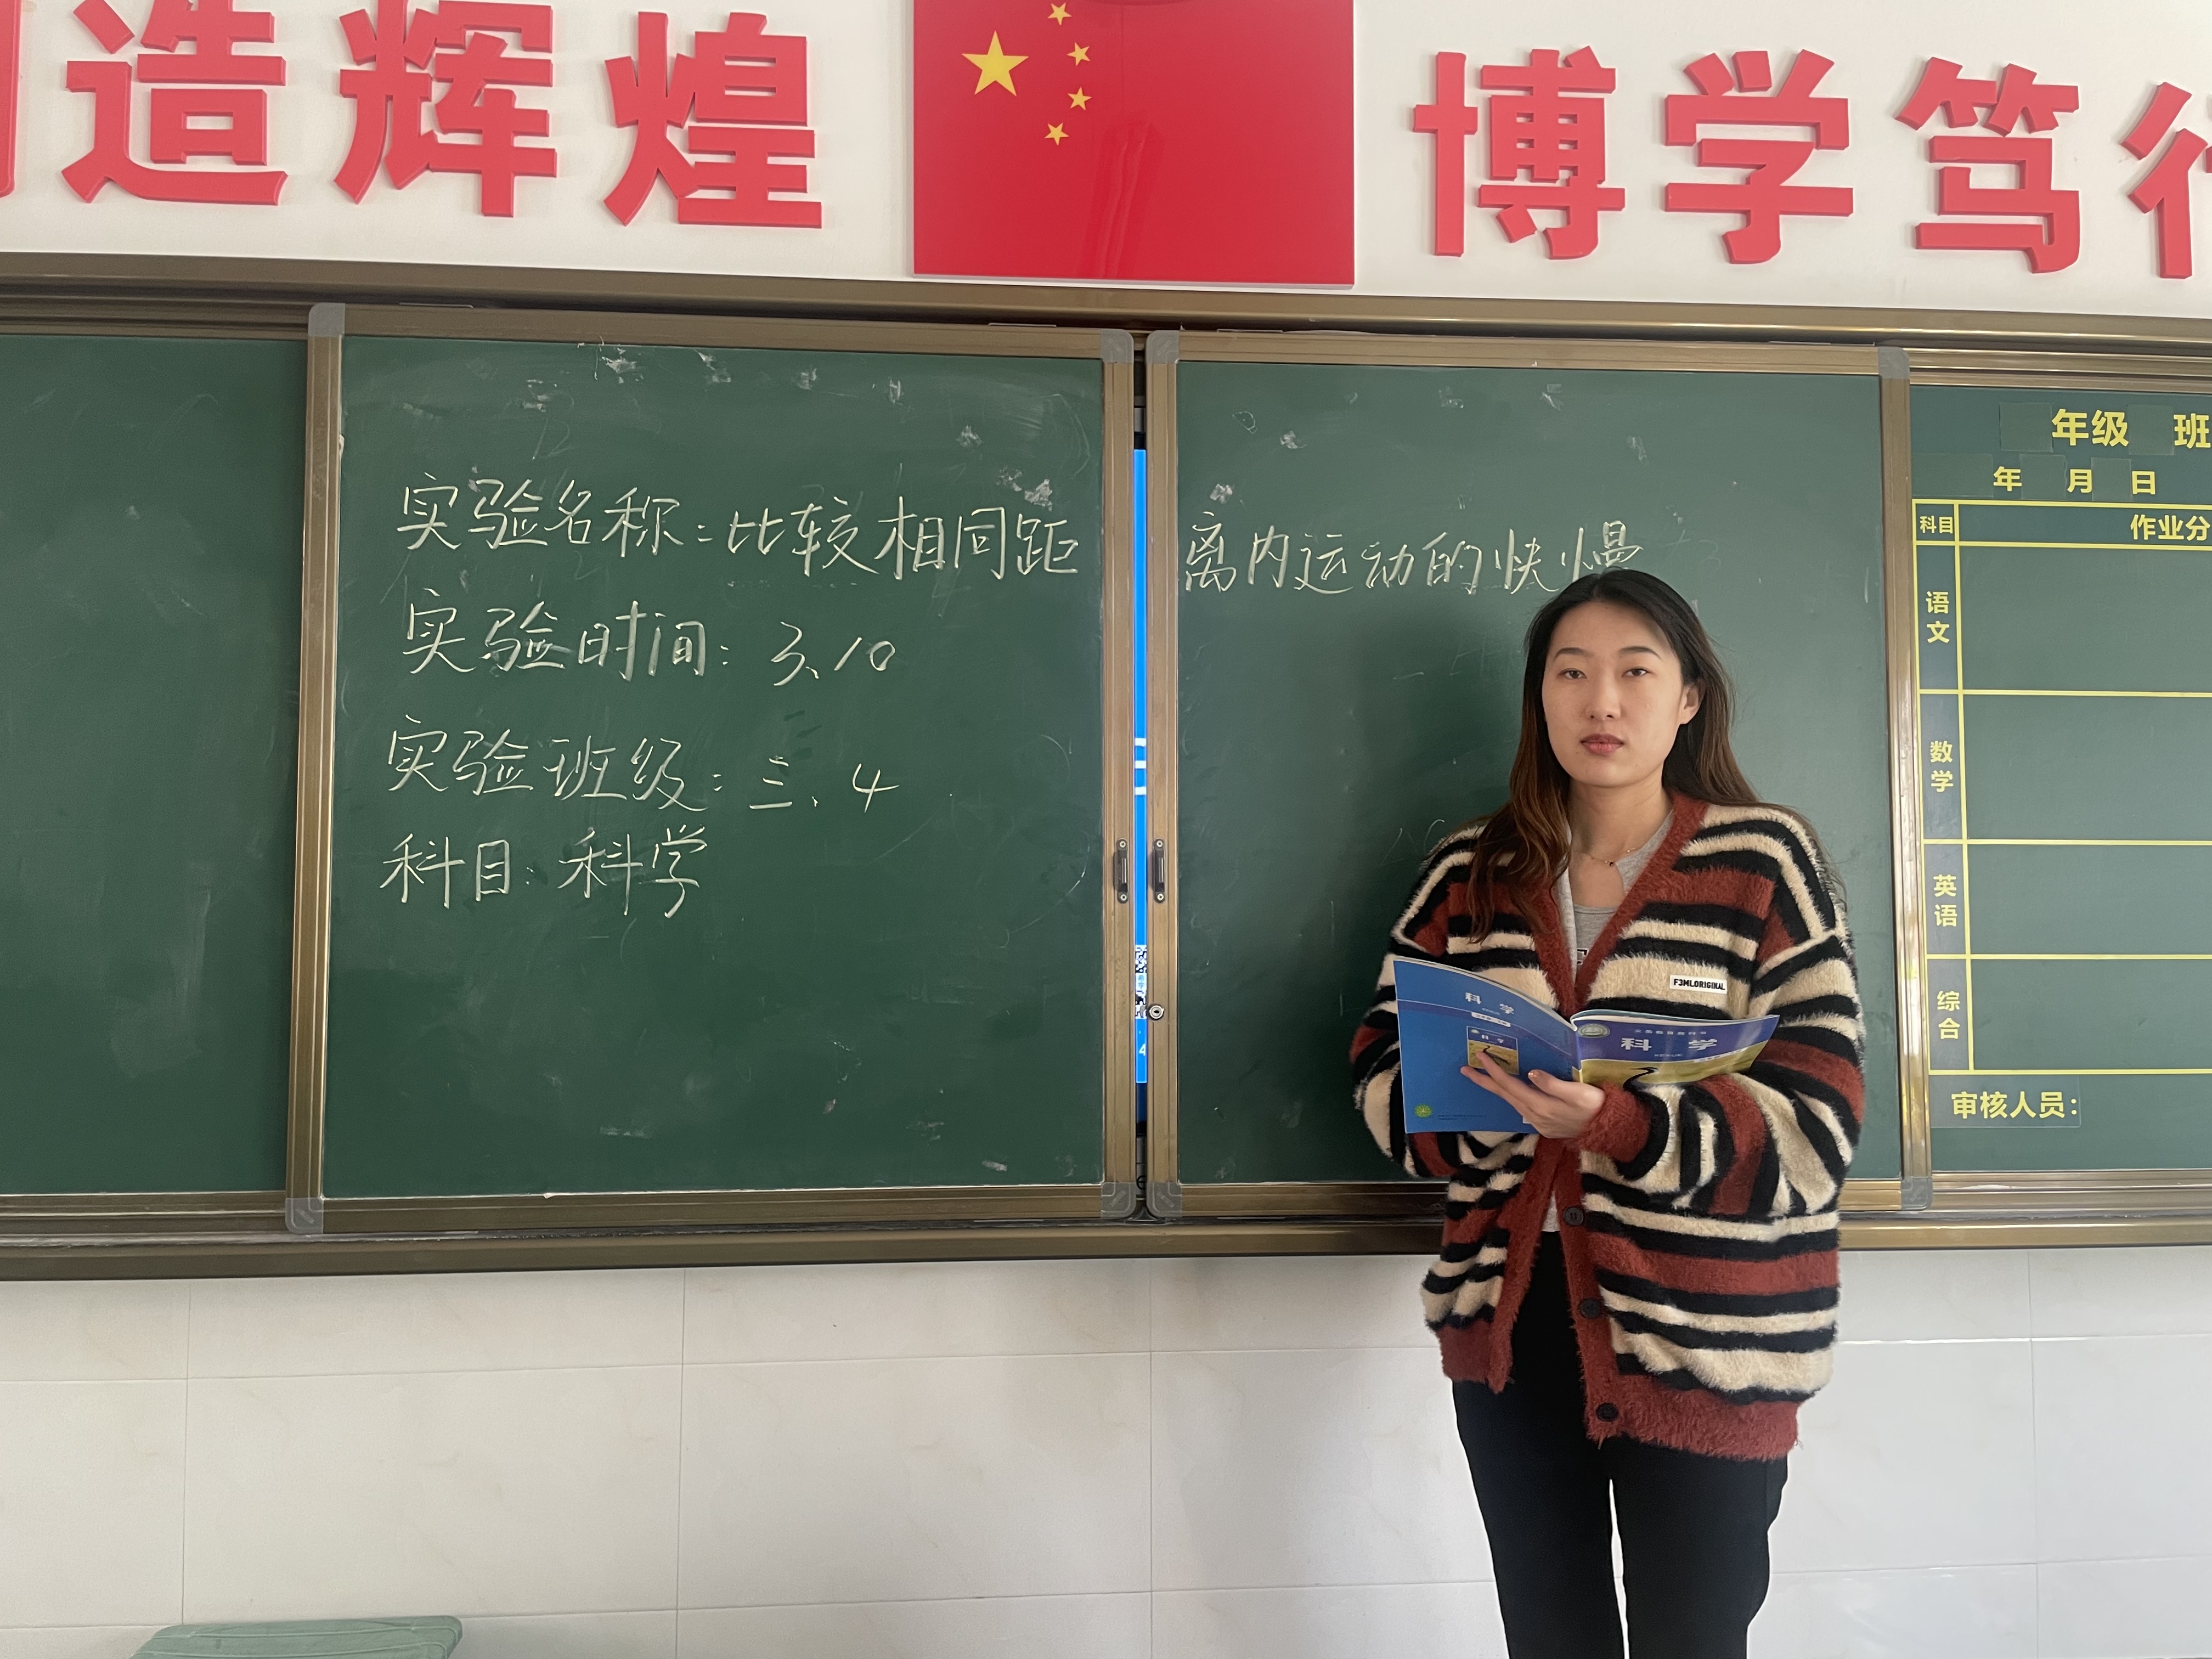 造辉煌
博学笃行
实验名称：比较相同距离内运动的快慢
实验时间：3.10
实验班级：三.4
科目：科学
年级 班
年 月 日
科目 作业分
语文
数学
英语
综合
审核人员：
F3MLORIGINAL
科学
科学